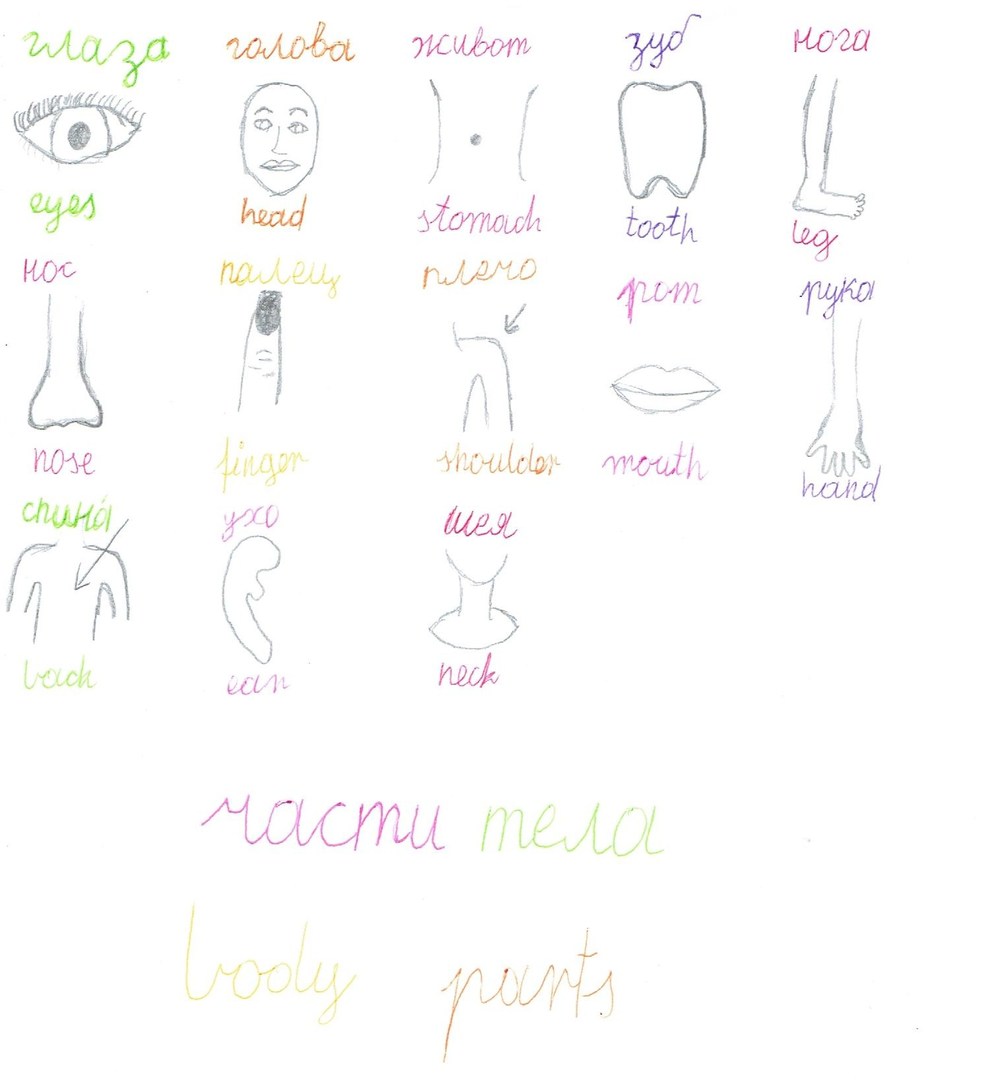 глаза голова живот зуб нога
eyes head stomach tooth leg
нос палец плечо рот рука
nose finger shoulder mouth hand
спина́ ухо шея
back ear neck
части тела
body parts